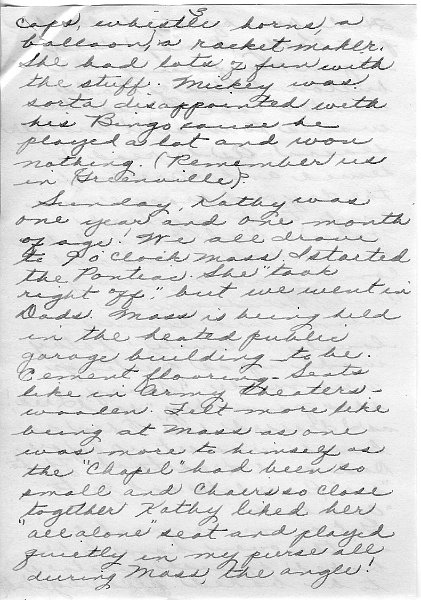 3
caps, whistle horns, a
balloon, a racket maker.
She had lots of fun with
the stuff. Mickey was
sorta disappointed with
his Bingo cause he
played a lot and won
nothing. (Remember us
in Greenville)?
Sunday, Kathy was
one year and one month
of age! We all drove
to 9 o'clock Mass, I started
the Pontiac. She "took
right off," but we went in
Dads. Mass is being held
in the heated public
garage building to be.
Cement flooring - Seats
like in Army theaters -
wooden. Felt more like
being at Mass as one
was more to himself as
the "Chapel" had been so
small and chairs so close
together Kathy liked her
"all alone" seat and played
quietly in my purse all
during Mass, the angle!